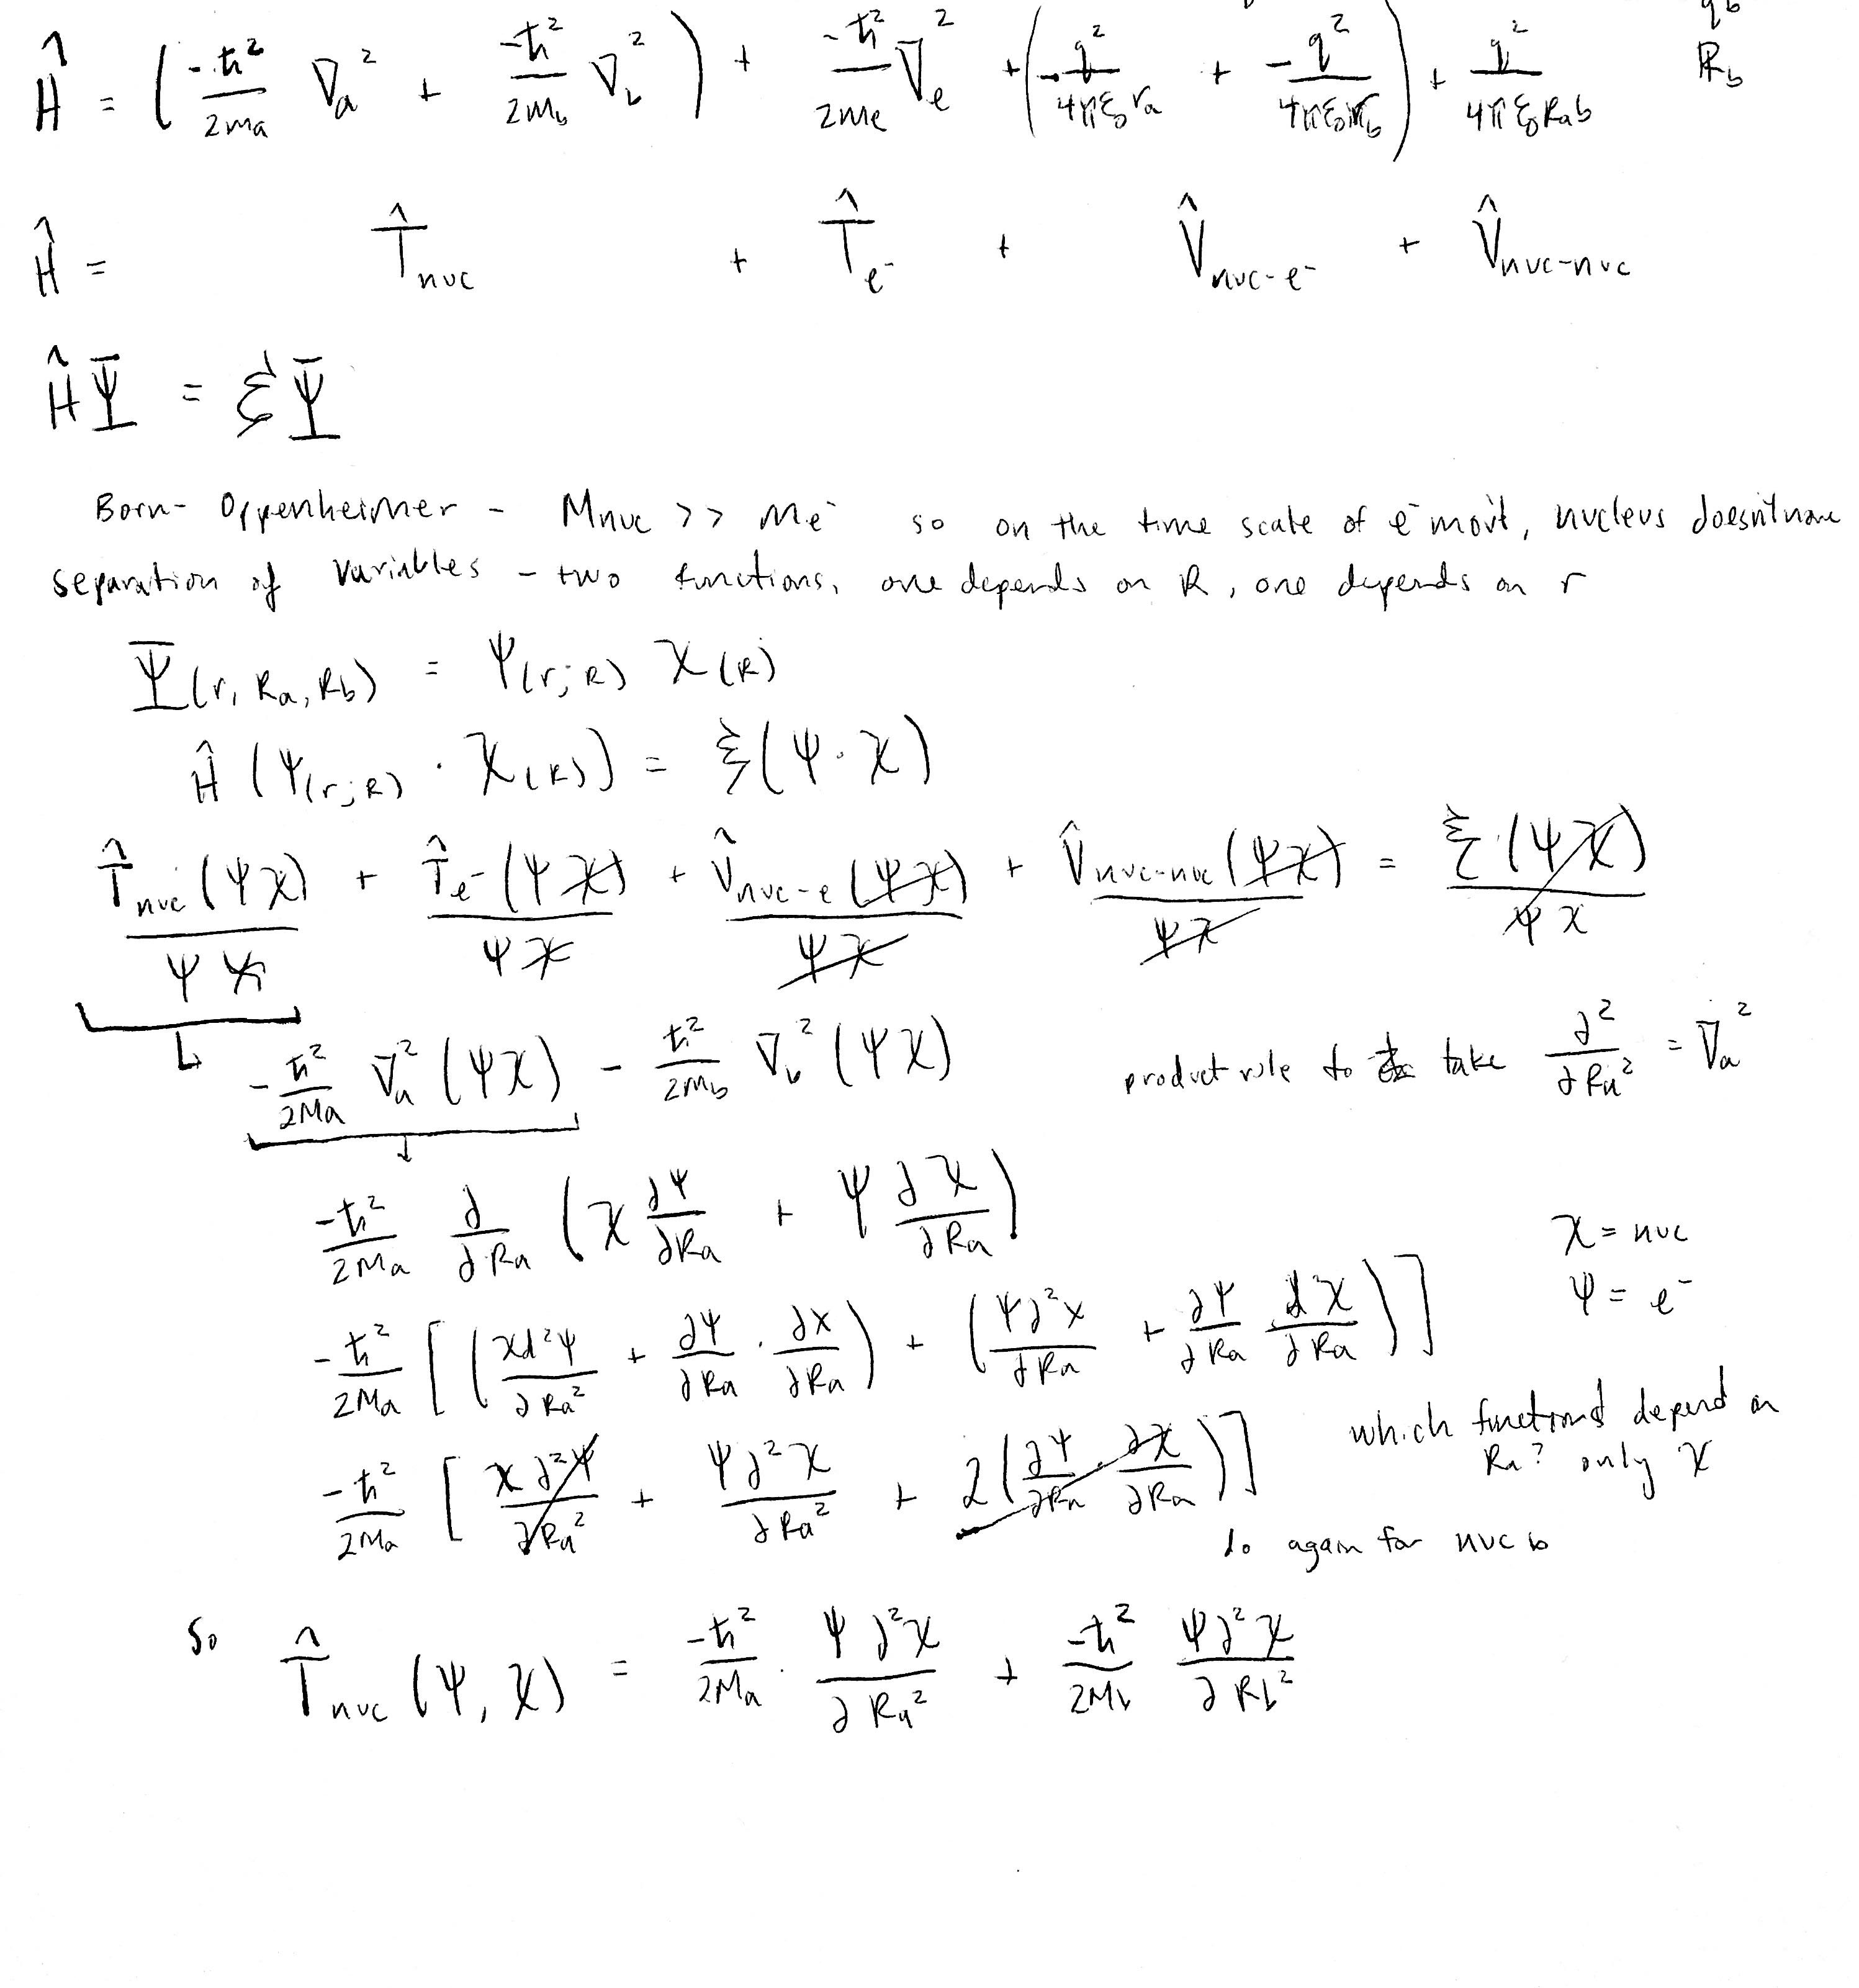 q_b
Ĥ = (-ħ²/2ma ∇a² + -ħ²/2Mb ∇b²) + -ħ²/2me ∇e² + (-q²/4πε₀ra + -q²/4πε₀rb) + q²/4πε₀Rab
R_b
Ĥ = T̂nuc + T̂e⁻ + V̂nuc-e⁻ + V̂nuc-nuc
ĤΨ = ξΨ
Born-Oppenheimer - Mnuc >> me⁻ so on the time scale of e⁻ mov't, nucleus doesn't move
separation of variables - two functions, one depends on R, one depends on r
Ψ(r, Ra, Rb) = ψ(r;R) χ(R)
Ĥ (ψ(r;R) · χ(R)) = ξ(ψ·χ)
T̂nuc(ψχ)/ψχ + T̂e⁻(ψχ)/ψχ + V̂nuc-e(ψχ)/ψχ + V̂nuc-nuc(ψχ)/ψχ = ξ(ψχ)/ψχ
-ħ²/2Ma ∇a²(ψχ) - ħ²/2Mb ∇b²(ψχ) product rule to take ∂²/∂Ra² = ∇a²
-ħ²/2Ma ∂/∂Ra (χ ∂ψ/∂Ra + ψ ∂χ/∂Ra)
χ = nuc
ψ = e⁻
-ħ²/2Ma [(χd²ψ/∂Ra² + ∂ψ/∂Ra · ∂χ/∂Ra) + (ψ∂²χ/∂Ra + ∂ψ/∂Ra ∂χ/∂Ra)]
which functions depend on
Ra? only χ
-ħ²/2Ma [χ∂²ψ/∂Ra² + ψ∂²χ/∂Ra² + 2(∂ψ/∂Ra · ∂χ/∂Ra)]
do again for nuc b
So T̂nuc(ψ, χ) = -ħ²/2Ma · ψ∂²χ/∂Ra² + -ħ²/2Mb ψ∂²χ/∂Rb²